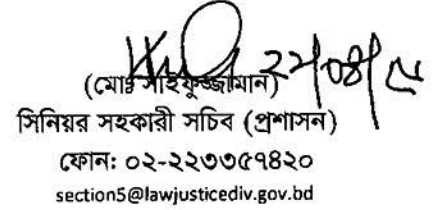 ২২/০৪/
(মোঃ সাইফুজ্জামান)
সিনিয়র সহকারী সচিব (প্রশাসন)
ফোন: ০২-২২৩৩৫৭৪২০
section5@lawjusticediv.gov.bd